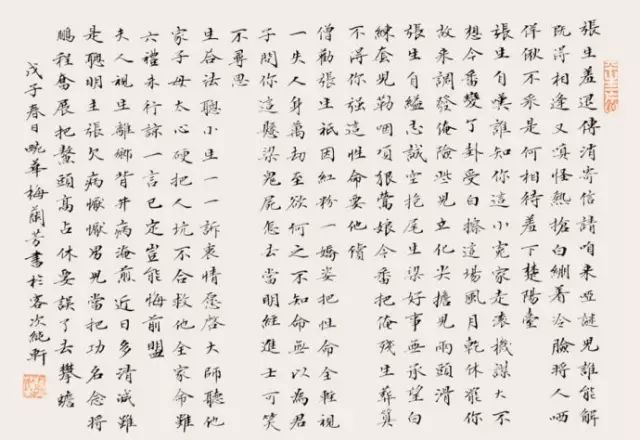 張生羞退傳消寄信請咱來啞謎兒誰能解
既得相逢又嗔怪熱搶白綳着冷臉將人哂
佯偢不采是何相待羞下楚陽臺
張生自嘆誰知你這小冤家走滾機謀大不
想今番變了卦受白撩這場風月乾休罷你
故來調發俺險些兒立化尖擔兒兩頭滑
張生自縊志誠空抱尾生梁好事無承望白
練套兒勒咽項狠鶯娘今番把俺殘生葬算
不得你強這性命要他償
僧勸張生祇因紅粉一嬌姿把性命全輕視
一失人身萬劫至欲何之不知命無以為君
子問你這懸梁鬼屍怎去當明經進士可笑
不尋思
生答法聰小生一一訴衷情愿啓大師聽他
家子母太心硬把人坑不合救他全家命難
六禮未行諒一言已定豈能悔前盟
夫人視生離鄉背井病淹煎近日多清減雖
是聰明主張欠病懨懨男兒當把功名念將
鵬程奮展把鰲頭高占休要誤了去攀蟾
戊子春日畹華梅蘭芳書於客次純軒